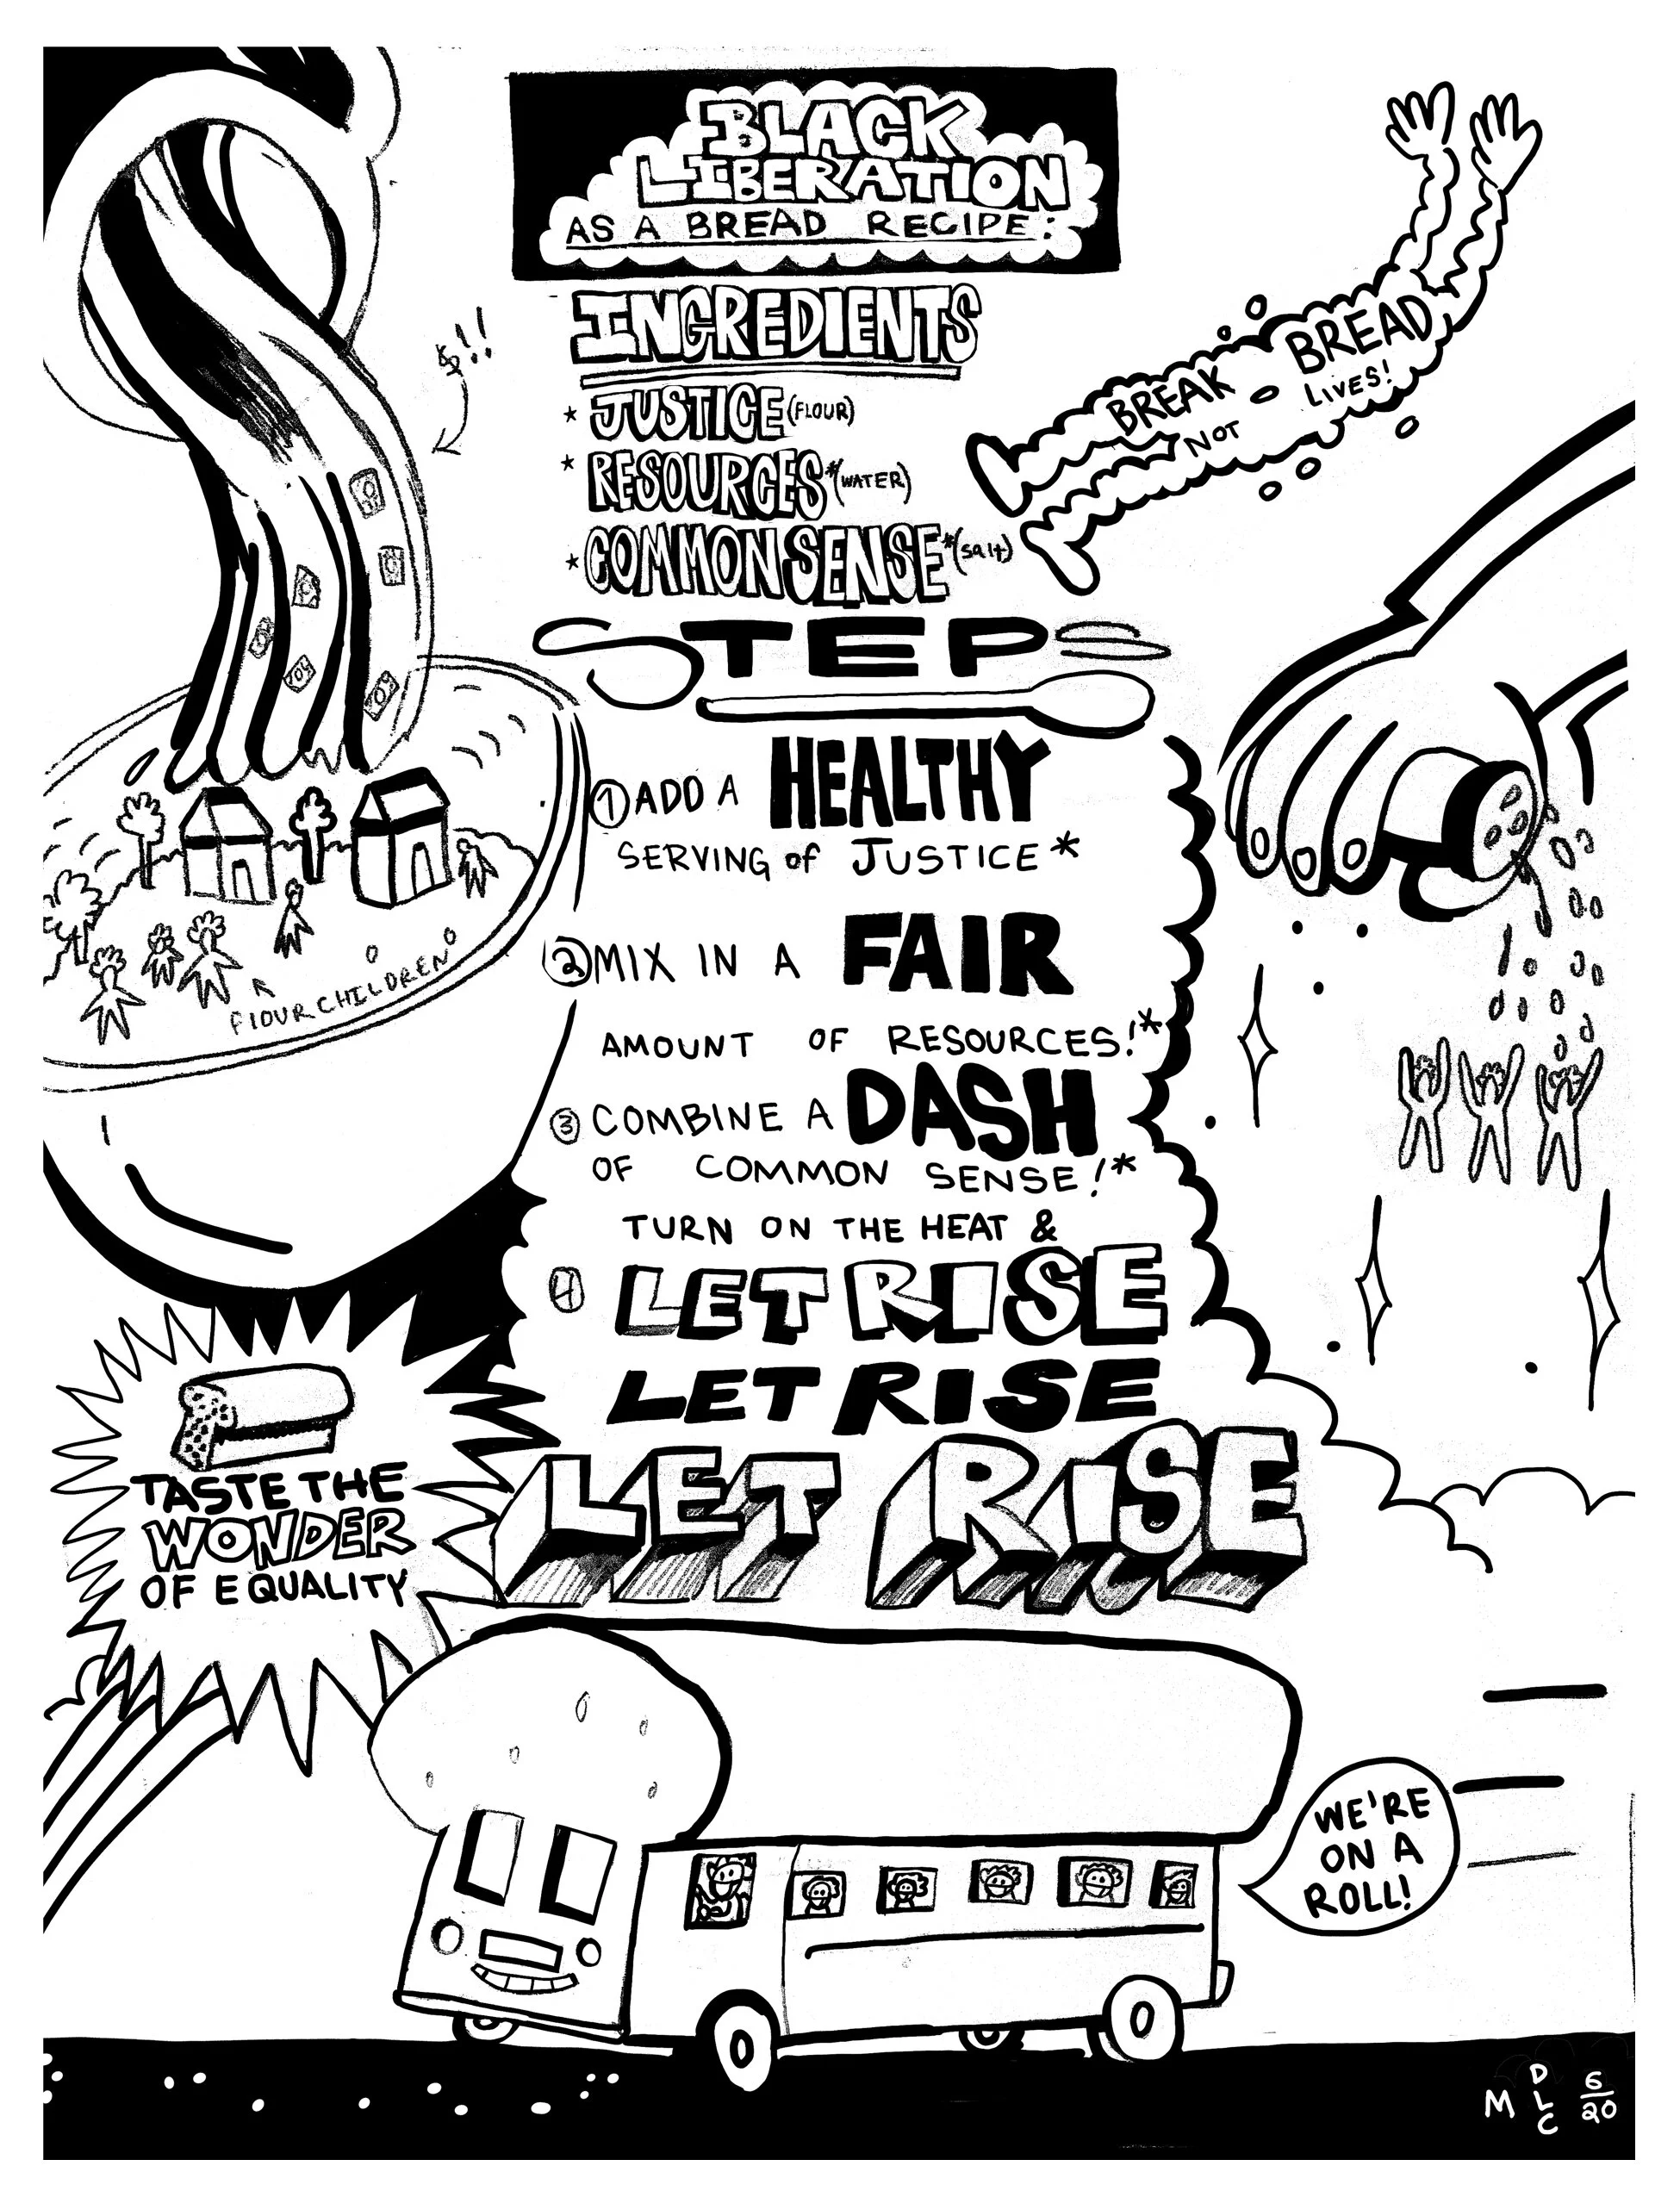 BLACK
LIBERATION
AS A BREAD RECIPE:
INGREDIENTS
* JUSTICE (FLOUR)
* RESOURCES* (WATER)
* COMMON SENSE* (salt)
$!!
BREAK BREAD
NOT LIVES!
STEPS
① ADD A HEALTHY
SERVING of JUSTICE*
② MIX IN A FAIR
AMOUNT OF RESOURCES!*
③ COMBINE A DASH
OF COMMON SENSE!*
TURN ON THE HEAT &
④ LET RISE
LET RISE
LET RISE
FlOUR CHILDREN
TASTE THE
WONDER
OF EQUALITY
WE'RE
ON A
ROLL!
M DLC 6/20